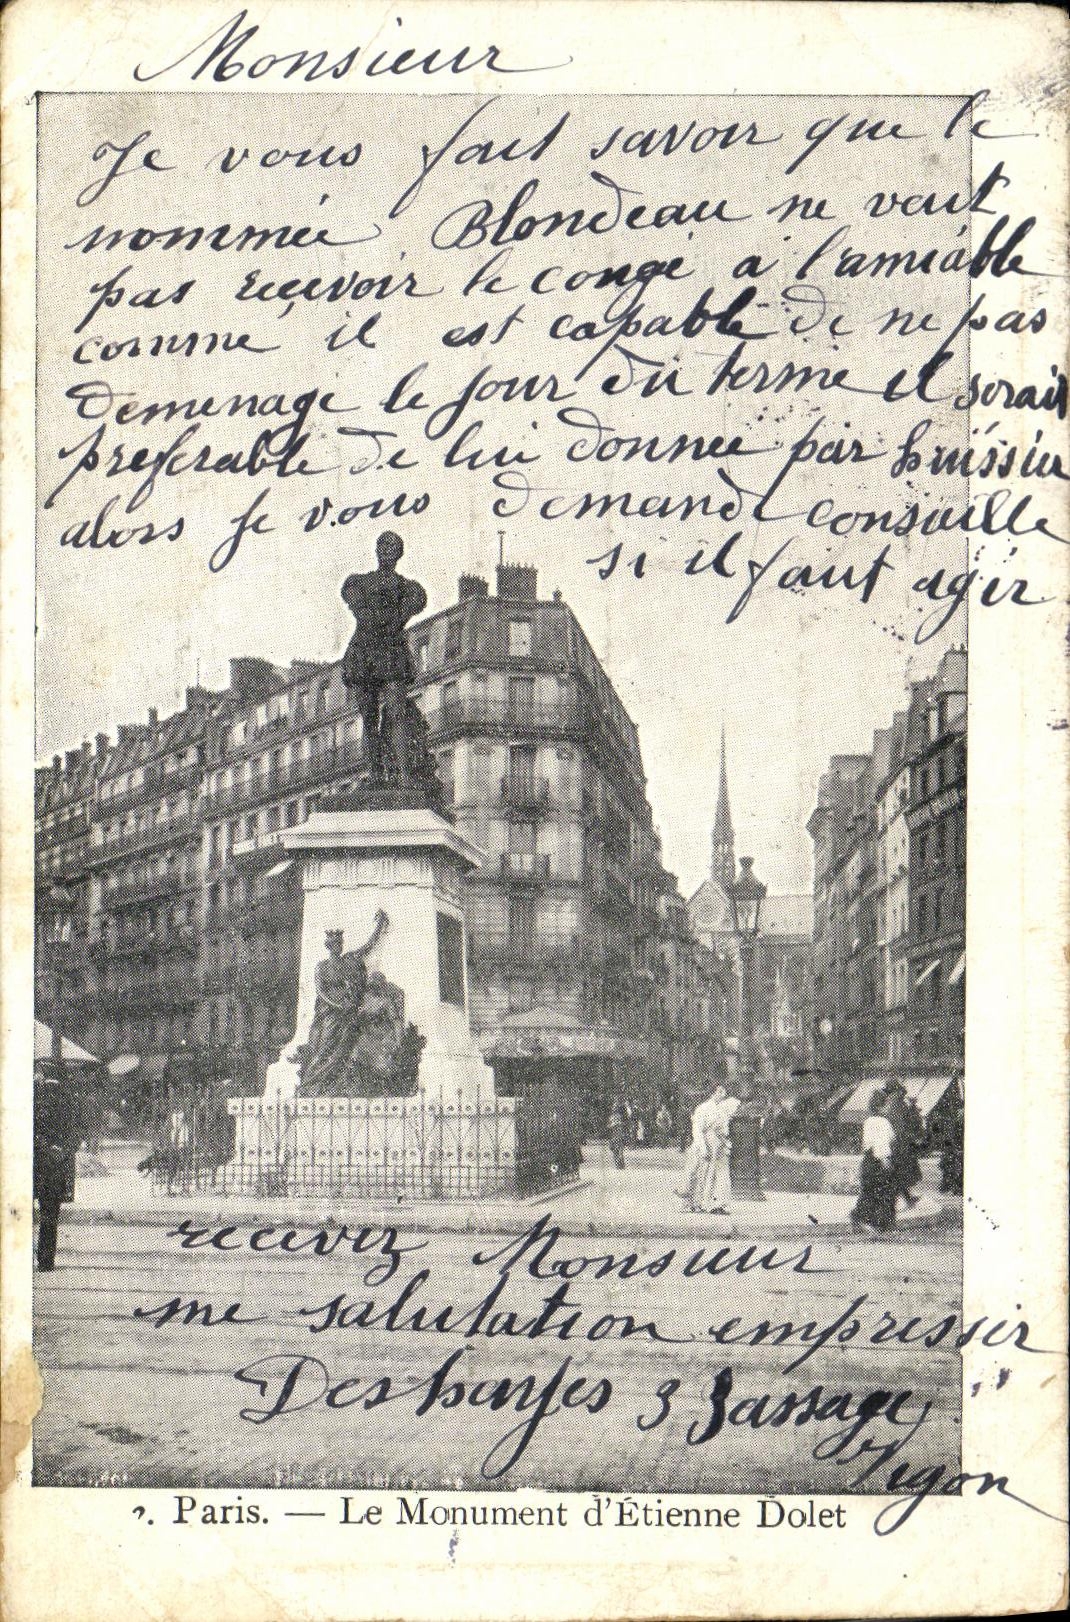 Monsieur
Je vous fait savoir que le
nommée Blondeau ne veut
pas reçevoir le congé a l'amiable
comme il est capable de ne pas
demenage le jour du terme il serait
preferable de lui donnee par huissier
alors je vous demande conseille
si il faut agir
recevez Monsieur
me salutation empresser
Desharjes 3 Passage
Pigon
2. Paris. — Le Monument d'Étienne Dolet